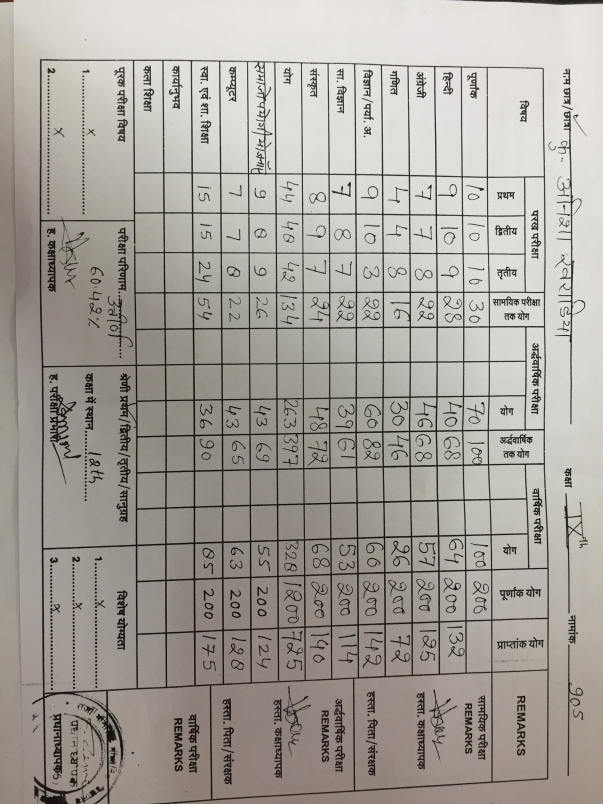 नाम छात्र/छात्रा कु. अनिशा देवराडिया कक्षा IX th नामांक 905
विषय परख परीक्षा अर्द्धवार्षिक परीक्षा वार्षिक परीक्षा पूर्णांक योग प्राप्तांक योग REMARKS
प्रथम द्वितीय तृतीय सामयिक परीक्षा तक योग योग अर्द्धवार्षिक तक योग योग
पूर्णांक 10 10 10 30 70 100 100 200
हिन्दी 9 10 9 28 40 68 64 200 132
अंग्रेजी 7 7 8 22 46 68 57 200 125
गणित 4 4 8 16 30 46 26 200 72
विज्ञान/पर्या. अ. 9 10 3 22 60 82 60 200 142
सा. विज्ञान 7 8 7 22 39 61 53 200 114
संस्कृत 8 9 7 24 48 72 68 200 140
योग 44 48 42 134 263 397 328 1200 725
समाजोपयोगी योजनाएँ 9 8 9 26 43 69 55 200 124
कम्प्यूटर 7 7 8 22 43 65 63 200 128
स्वा. एवं शा. शिक्षा 15 15 24 54 36 90 85 200 175
कार्यानुभव
कला शिक्षा
सामयिक परीक्षा
REMARKS
हस्ता. कक्षाध्यापक
हस्ता. पिता/संरक्षक
अर्द्धवार्षिक परीक्षा
REMARKS
हस्ता. कक्षाध्यापक
हस्ता. पिता/संरक्षक
वार्षिक परीक्षा
REMARKS
पूरक परीक्षा विषय
1. x
2. x
परीक्षा परिणाम उत्तीर्ण
60.42%
ह. कक्षाध्यापक
श्रेणी प्रथम/द्वितीय/तृतीय/सानुग्रह
कक्षा में स्थान 12th
ह. परीक्षा प्रभारी
विशेष योग्यता
1. x
2. x
3. x
प्रधानाध्यापक